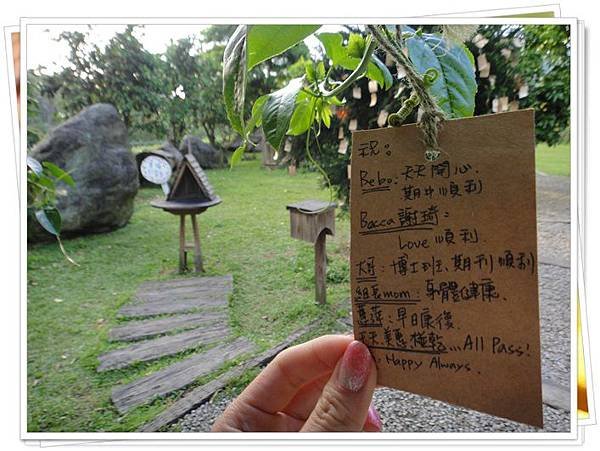 祝：
Bebo：天天開心.
期中順利
Bacca 謝琦：
Love 順利.
大哥：博士班、期刊順利
組長mom：身體健康.
慧萍：早日康復.
天天,美惠,極乾...All Pass!
Happy Always.